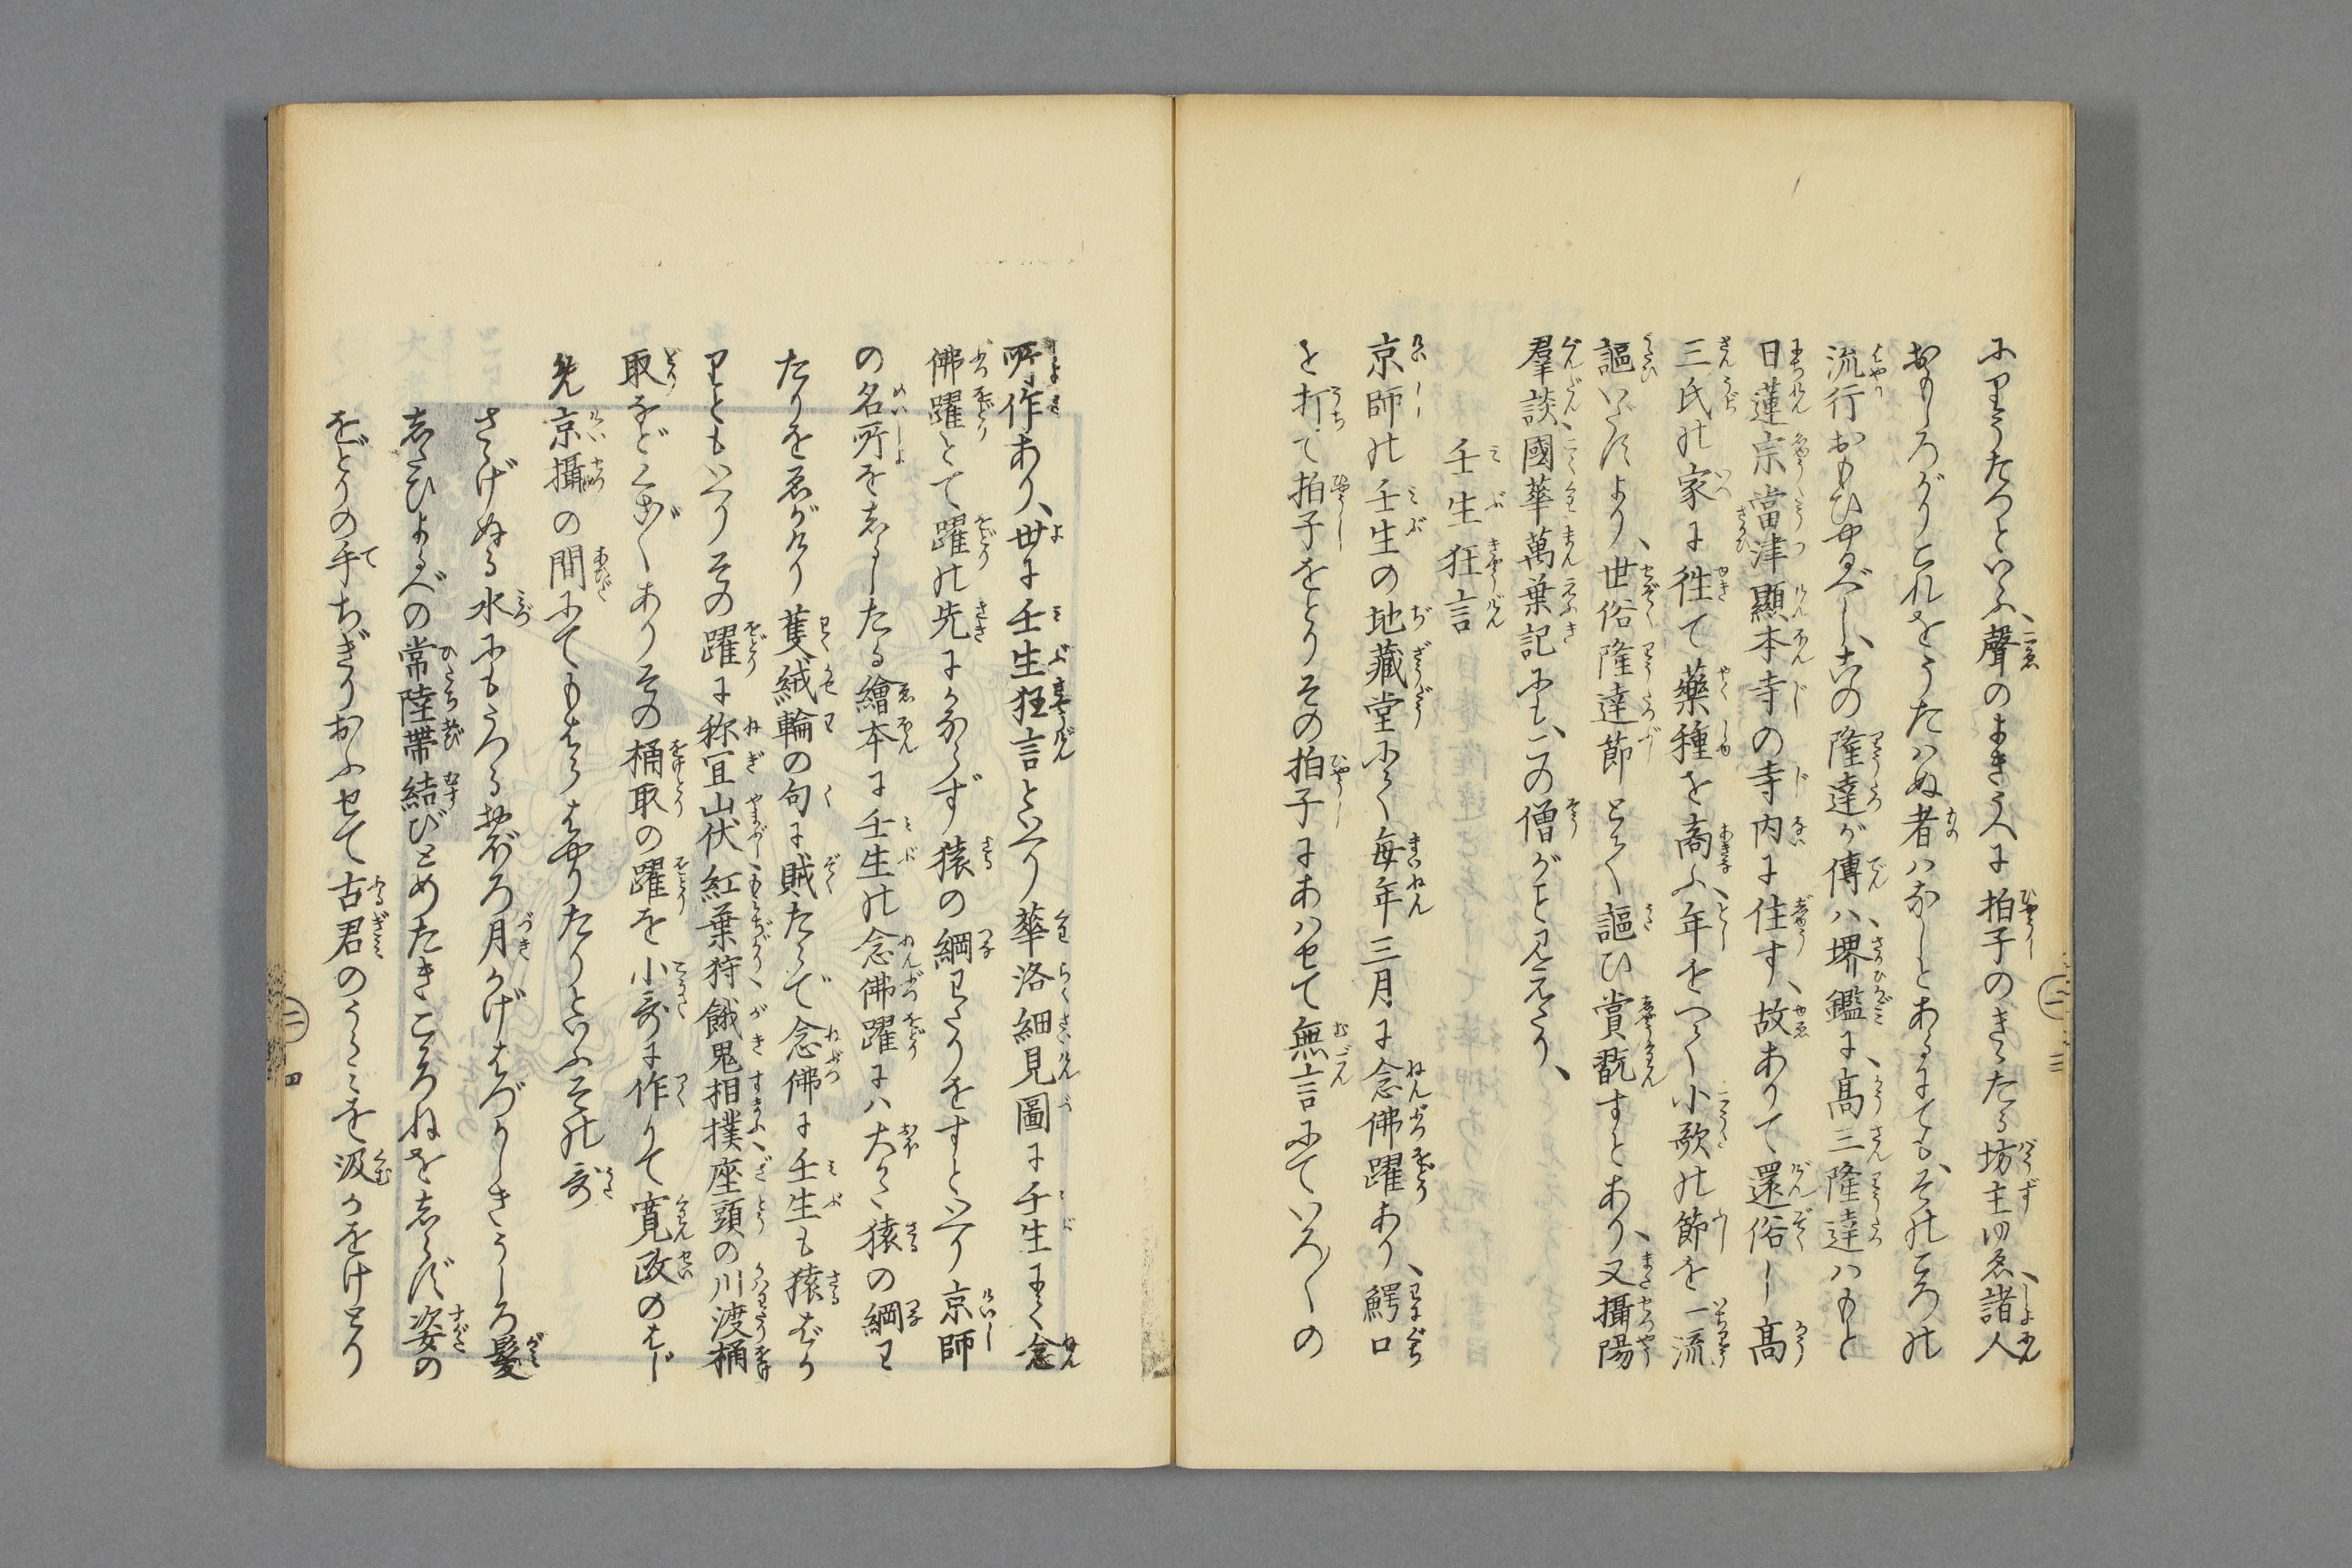 にりうたつといふ、聲のよき人に拍子のきゝたる坊主ゆゑ、諸人
おもしろがりこれをうたハぬ者ハなしとあるにても、そのころの
流行おもひやるべし、右の隆達が傳ハ、堺鑑に、高三隆達ハもと
日蓮宗當津顯本寺の寺内に住す、故ありて還俗し高
三氏の家に徃て藥種を商ふ、年をつんで小歌の節を一流
謳いだすより、世俗隆達節とて謳ひ賞翫すとあり、又攝陽
羣談、國華萬葉記にも、この僧がこと見えたり、
壬生狂言
京師の壬生の地藏堂にて毎年三月に念佛躍あり、鰐口
を打て拍子をとりその拍子にあハせて無言にていろ〳〵の
所作あり、世に壬生狂言といへり華洛細見圖に壬生にて念
佛躍とて躍の先にかならず猿の綱わたりをすといへり京師
の名所をしるしたる繪本に壬生の念佛躍にハ大かた猿の綱わ
たりをゑがけり 篗絨輪の句に賊たゝで念佛に壬生も猿ばか
りともいへりその躍に祢宜山伏、紅葉狩、餓鬼相撲、座頭の川渡桶
取などくさ〴〵ありその桶取の躍を小哥に作りて寛政のはじ
先京攝の間にてもはらはやりたりといふその哥
さゝげぬる水にもうつるおぼろ月かげはづかしきうしろ髮
したひよるべの常陸帶結びとめたきこゝろねをしらず姿の
をどりの手ちぎりおふせて古君のうらみを汲かをけとり
二 三
二 四